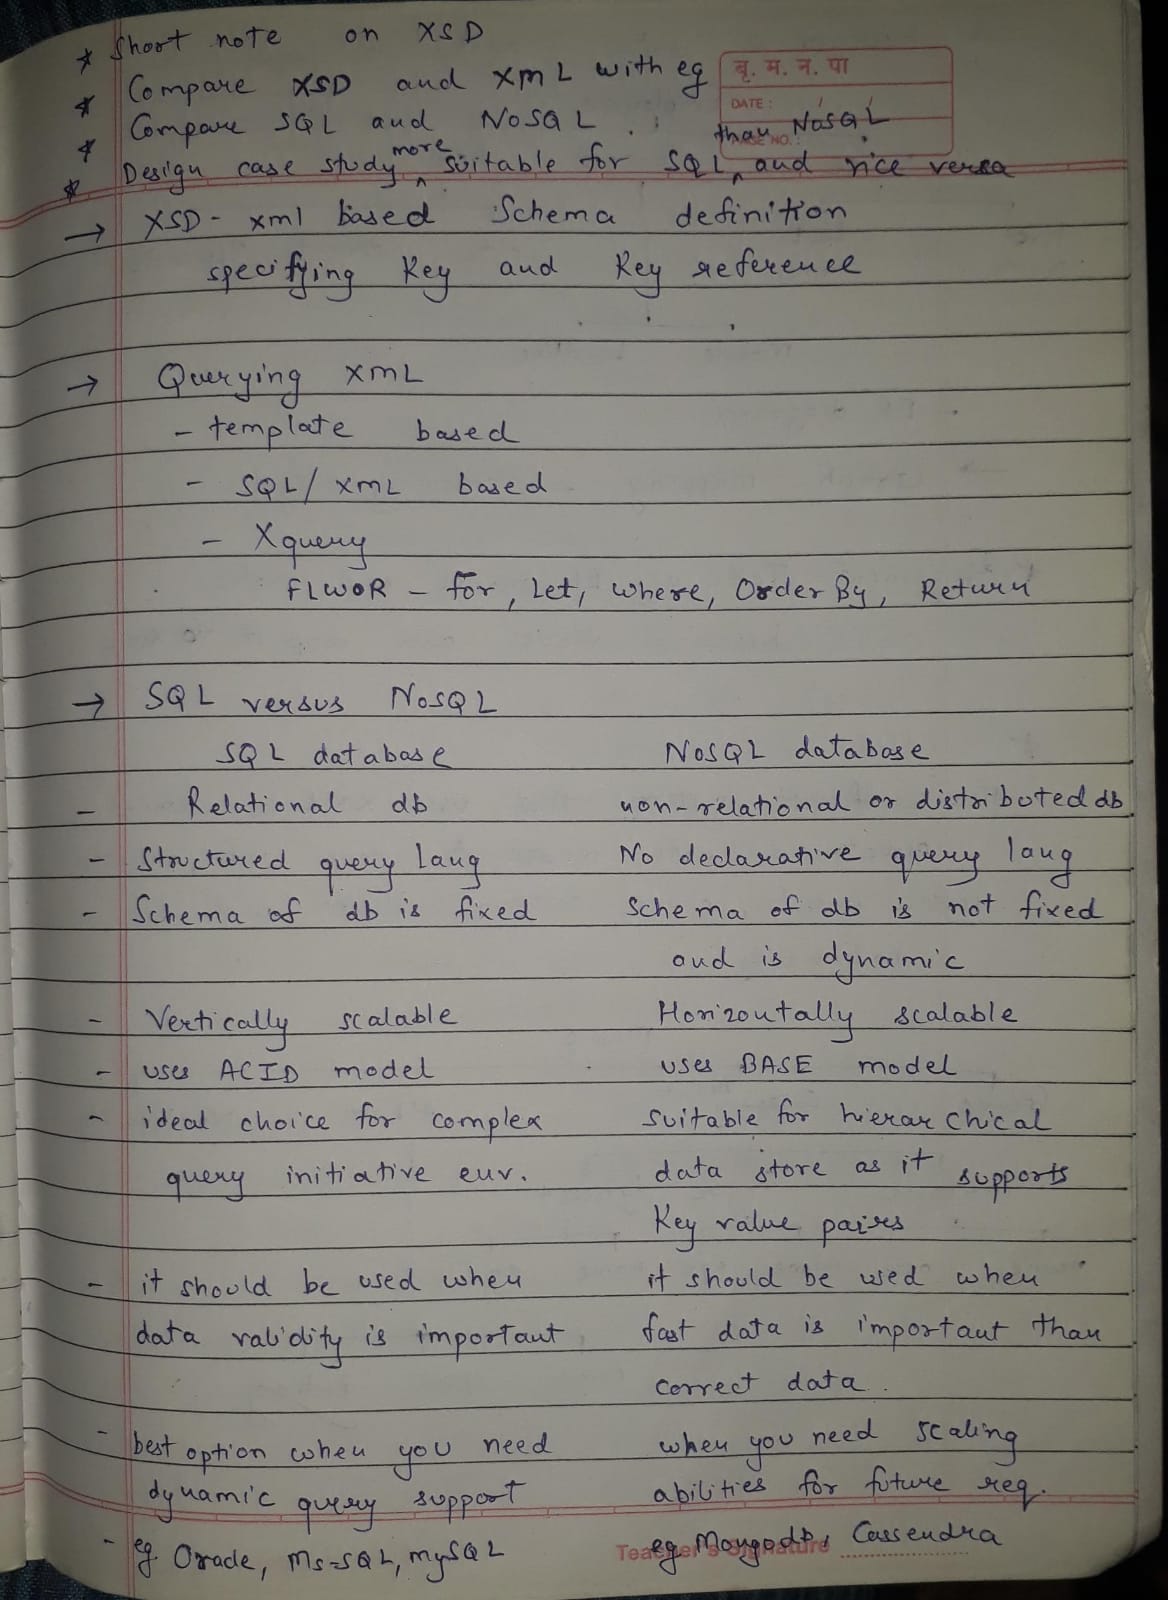 * Short note on XSD
* Compare XSD and XML with eg
बृ. म. न. पा
DATE:
* Compare SQL and NOSQL.
than NOSQL
* Design case study more suitable for SQL and vice versa
→ XSD - xml based Schema definition
specifying Key and Key reference
→ Querying XML
- template based
- SQL/XML based
- Xquery
FLWOR - for, Let, where, Order By, Return
→ SQL versus NOSQL
SQL database NOSQL database
- Relational db non-relational or distributed db
- Structured query lang No declarative query lang
- Schema of db is fixed Schema of db is not fixed
and is dynamic
- Vertically scalable Horizontally scalable
- uses ACID model uses BASE model
- ideal choice for complex suitable for hierarchical
query initiative env. data store as it supports
Key value paires
- it should be used when it should be used when
data validity is important fast data is important than
correct data.
- best option when you need when you need scaling
dynamic query support abilities for future req.
- eg Oracle, MS-SQL, mySQL eg Mongodb, Cassendra
Teacher's Signature